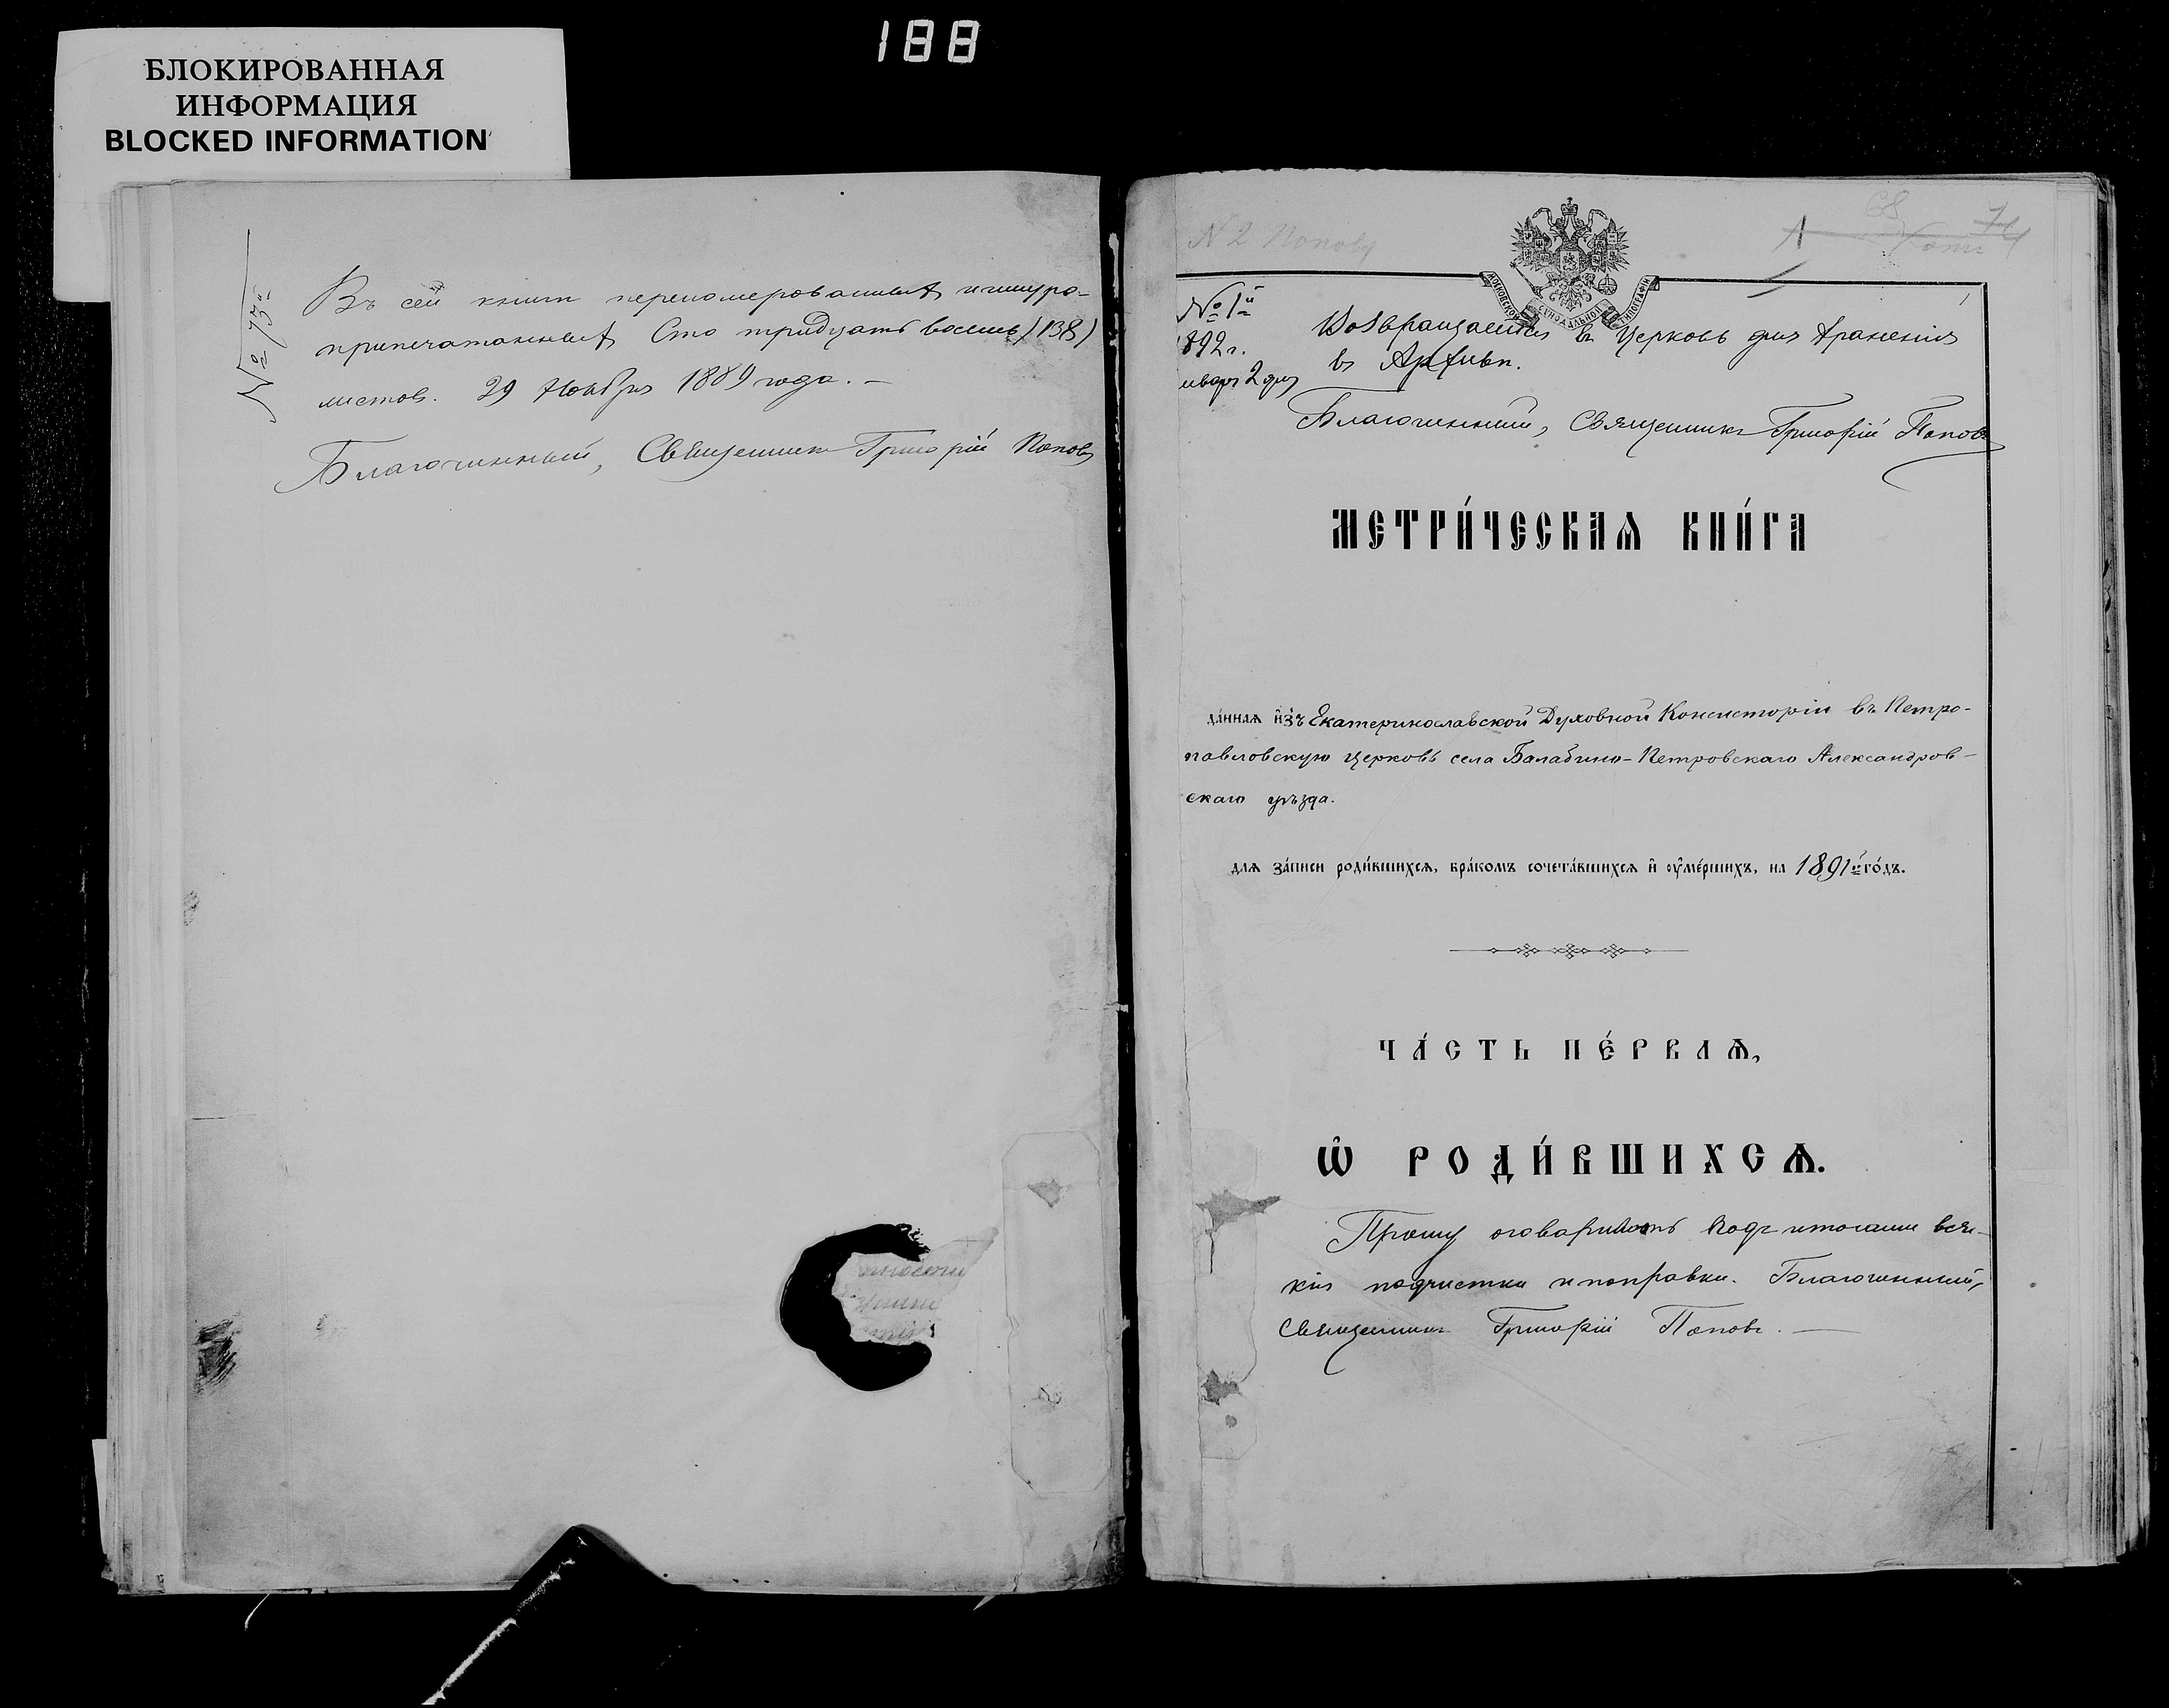 188
БЛОКИРОВАННАЯ
ИНФОРМАЦИЯ
BLOCKED INFORMATION
№ 73
Въ сей книгѣ перномерованныхъ и шнуро-
припечатанныхъ Сто тридцать восемь (138)
листовъ. 29 Ноября 1889 года. —
Благочинный, Священникъ Григорій Поповъ
N 2 Попову
МОСКОВСКОЙ СѴНОДАЛЬНОЙ ТИПОГРАФІИ
№ 1й
1892 г.
января 2 дня
Возвращается въ Церковь для храненія
въ Архивѣ.
Благочинный, Священникъ Григорій Поповъ
МЕТРИ́ЧЕСКАѦ КНИ́ГА
да́ннаѧ и҆зъ Екатеринославской Духовной Консисторіи въ Петро-
павловскую церковь села Балабино-Петровскаго Александров-
скаго уѣзда.
длѧ за́писи роди́вшихсѧ, бра́комъ сочета́вшихсѧ и҆ ᲂу҆ме́ршихъ, на 1891й го́дъ.
ЧА́СТЬ ПЕ́РВАѦ,
Ѡ҆ РОДИ́ВШИХСѦ.
Прошу оговаривать подъ итогами вся-
кія подчистки и поправки. Благочинный,
Священникъ Григорій Поповъ. —